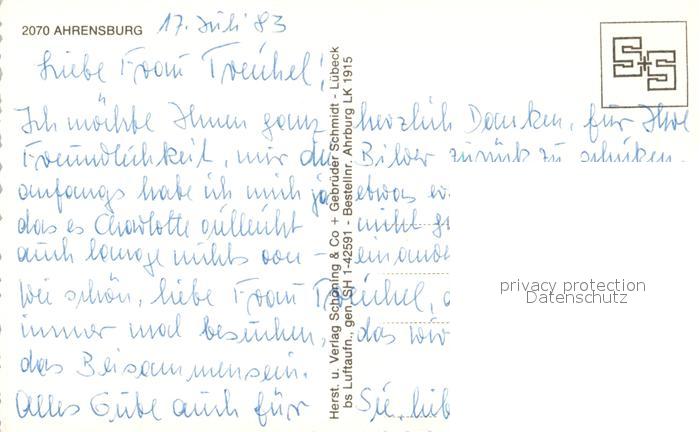 2070 AHRENSBURG 17. Juli 83
Liebe Frau Treichel!
Ich möchte Ihnen ganz herzlich Danken, für Ihre
Freundlichkeit, mir die Bilder zurück zu schicken.
anfangs habe ich mich ja etwas
das es Charlotte nicht
auch lange nichts von - einande
Wie schön, liebe Frau Treichel,
immer mal besuchen, das
das Beisammensein.
Alles Gute auch für Sie, lieb
Herst. u. Verlag Schöning & Co + Gebrüder Schmidt - Lübeck
bs Luftaufn., gen. SH 1-42591 - Bestellnr. Ahrburg LK 1915
S+S
privacy protection
Datenschutz